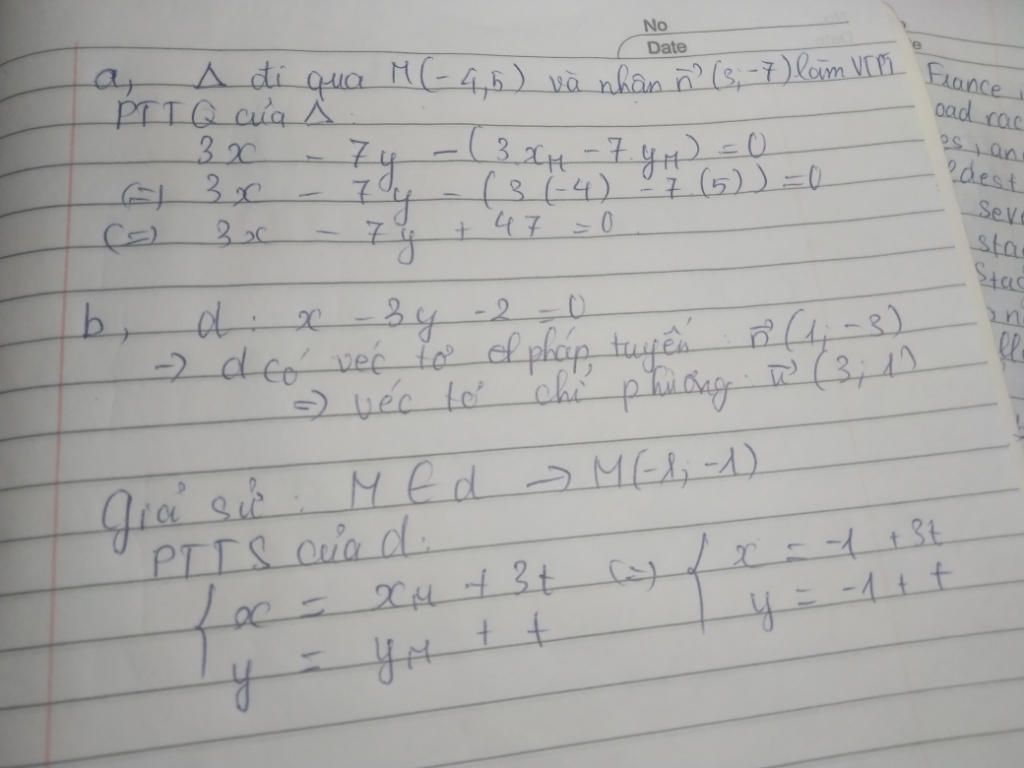 No
Date
a, Δ đi qua M(-4,5) và nhân n⃗(3;-7) làm VTPT
PTTQ của Δ:
3x - 7y - (3.x_M - 7.y_M) = 0
(=) 3x - 7y - (3(-4) - 7(5)) = 0
(=) 3x - 7y + 47 = 0.
b, d: x - 3y - 2 = 0
→ d có véc tơ pháp tuyến: n⃗(1;-3)
=> véc tơ chỉ phương: u⃗(3;1)
Giả sử: M ∈ d → M(-1;-1)
PTTS của d:
{ x = x_M + 3t (=) { x = -1 + 3t
y = y_M + t y = -1 + t
France
oad rac
es, an
dest
seve
sta
Sta